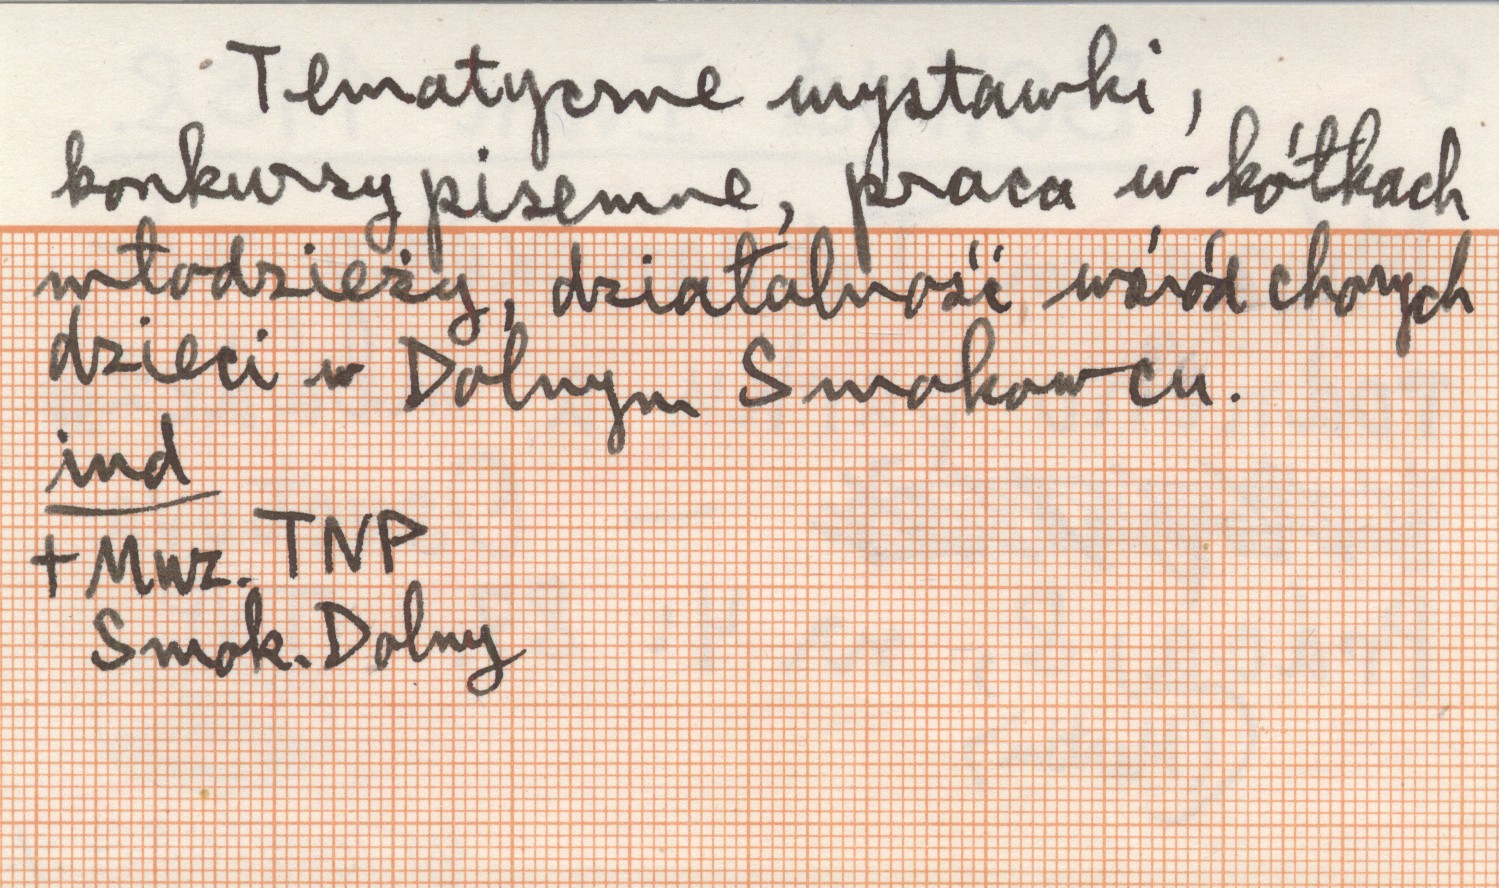 Tematyczne wystawki,
konkursy pisemne, praca w kółkach
młodzieży, działalność wśród chorych
dzieci w Dolnym Smokowcu.
ind
+ Muz. TNP
Smok. Dolny